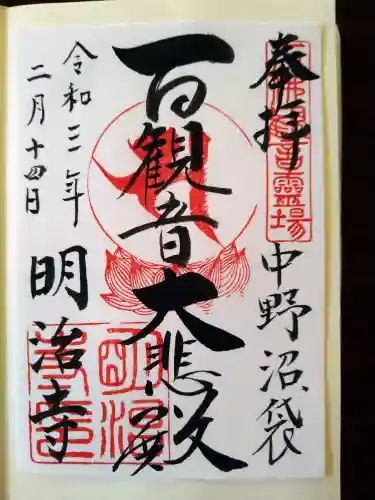 奉拝
中野沼袋
百観音大悲殿
令和三年
二月十四日
明治寺